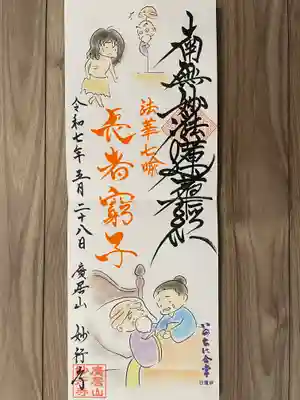 南無妙法蓮華経
法華七喩
長者窮子
令和七年五月二十八日
広居山
妙行寺
廣居山
妙行寺